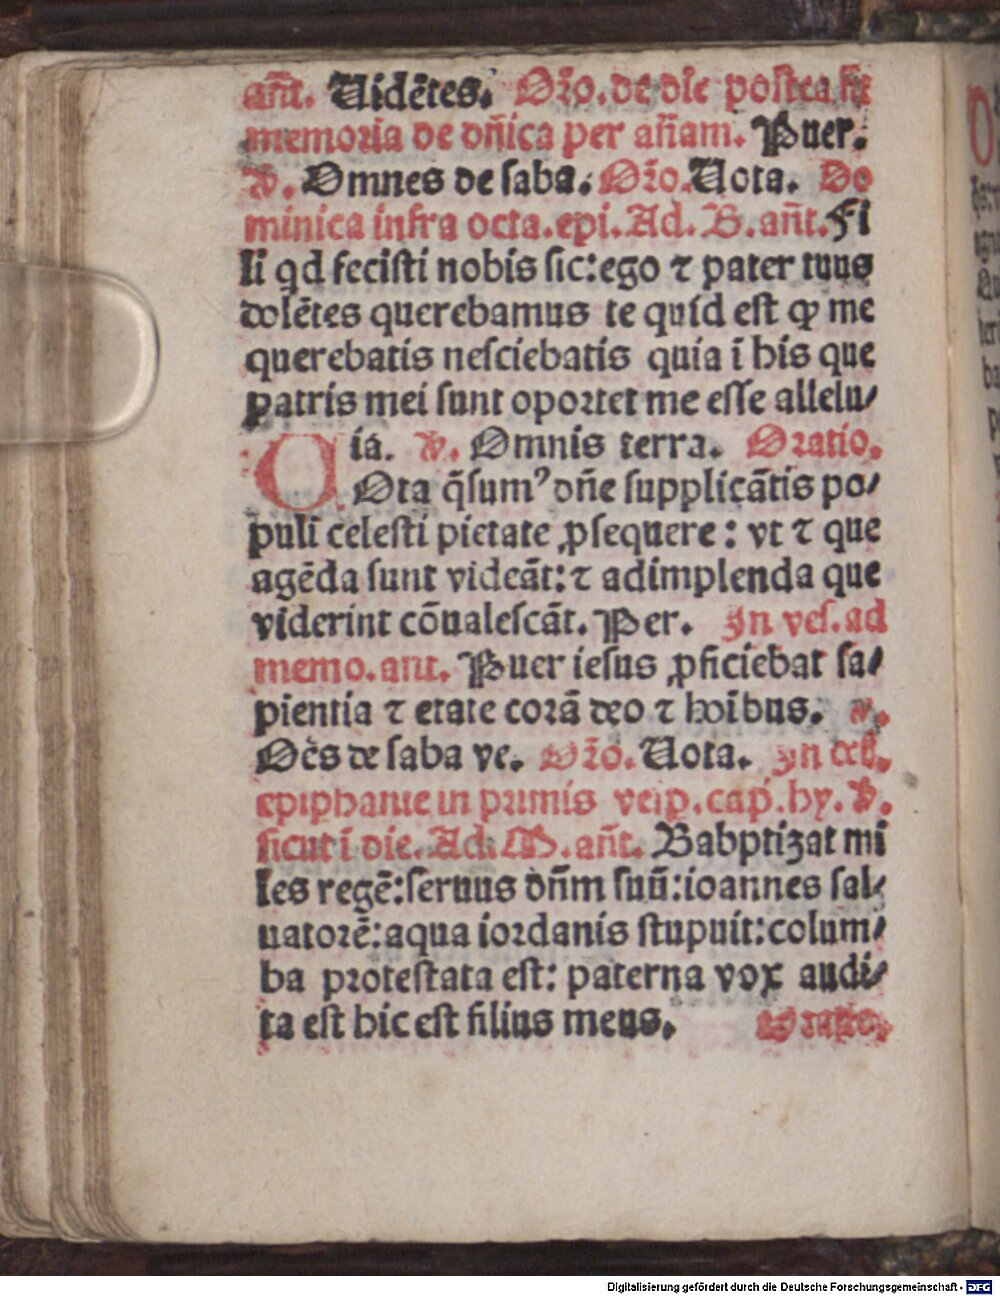 añt. Uidētes. Ořo. de die postea fit
memoria de dñica per añam. Puer.
V. Omnes de saba. Ořo. Uota. Do
minica infra octa. epi. Ad. B. añt. Fi
li qd fecisti nobis sic: ego ⁊ pater tuus
dolētes querebamus te quid est ꝙ me
querebatis nesciebatis quia ī his que
patris mei sunt oportet me esse allelu/
ia. V. Omnis terra. Oratio.
Uota q̄sumꝰ dñe supplicātis po/
puli celesti pietate ꝓsequere: vt ⁊ que
agēda sunt videāt: ⁊ adimplenda que
viderint cōualescāt. Per. In ves. ad
memo. ant. Puer iesus ꝓficiebat sa/
pientia ⁊ etate corā deo ⁊ hoībus. V.
Oēs de saba ve. Ořo. Uota. In oct.
epiphanie in primis vesp. cap. hy. V.
sicut ī die. Ad. M. añt. Babptizat mi
les regē: seruus dñm suū: ioannes sal/
uatorē: aqua iordanis stupuit: colum/
ba protestata est: paterna vox audi/
ta est hic est filius meus. Oratio.
Digitalisierung gefördert durch die Deutsche Forschungsgemeinschaft - DFG